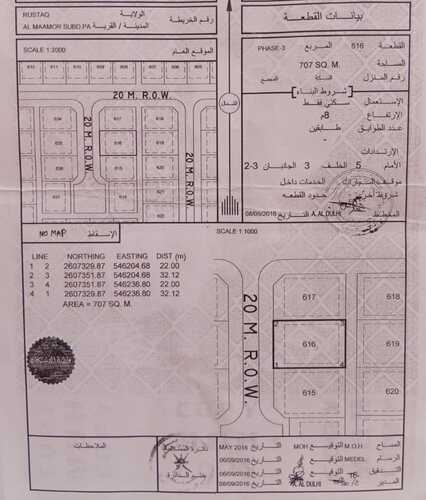 RUSTAQ
الولاية
AL MAAMOR SUBD.PA
المدينة / القرية
رقم الخريطة
SCALE 1:2000
الموقع العام
610
611
612
20 M. R.O.W.
20 M. R.O.W.
634
617
616
615
بيانات القطعة
القطعة
616
المربع
PHASE-3
المساحة
707 SQ. M.
رقم المنزل
السكة
المجمع
شروط البناء
الإستعمال
سكني فقط
الإرتفاع
8م
عدد الطوابق
طابقين
-
الإرتدادات
الأمام 5 الخلف 3 الجانبان 3-2
موقف السيارات
الخدمات داخل
حدود القطعه
المخطط
A. AL DULHI
التاريخ
08/09/2016
الشمال
NO MAP
الإسقاط
LINE NORTHING EASTING DIST (m)
1 2 2607329.87 546204.68 22.00
2 3 2607351.87 546204.68 32.12
3 4 2607351.87 546236.80 22.00
4 1 2607329.87 546236.80 32.12
AREA = 707 SQ. M.
SCALE 1:1000
20 M. R.O.W.
617
618
616
619
615
620
الملاحظات
المساح
M.O.H
التوقيع
MOH
التاريخ
MAY 2016
الرسام
MEDEL
التوقيع
التاريخ
06/09/2016
التدقيق
التاريخ
06/09/2016
المدير
A. AL DULHI
التاريخ
08/09/2016